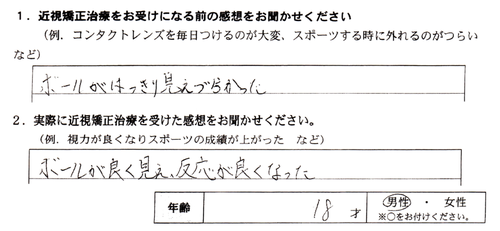 1．近視矯正治療をお受けになる前の感想をお聞かせください
（例．コンタクトレンズを毎日つけるのが大変、スポーツする時に外れるのがつらい
など）
ボールがはっきり見えづらかった
2．実際に近視矯正治療を受けた感想をお聞かせください。
（例．視力が良くなりスポーツの成績が上がった　など）
ボールが良く見え、反応が良くなった
年齢　18 才　男性 ・ 女性
※○をお付けください。